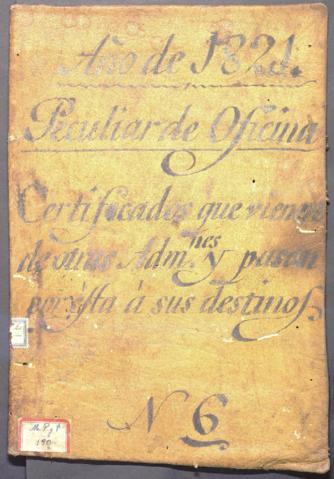 Año de 1821.
Peculiar de Oficina
Certificados que vienen
de otras Adm.nes y pasan
por ésta á sus destinos.
N 6